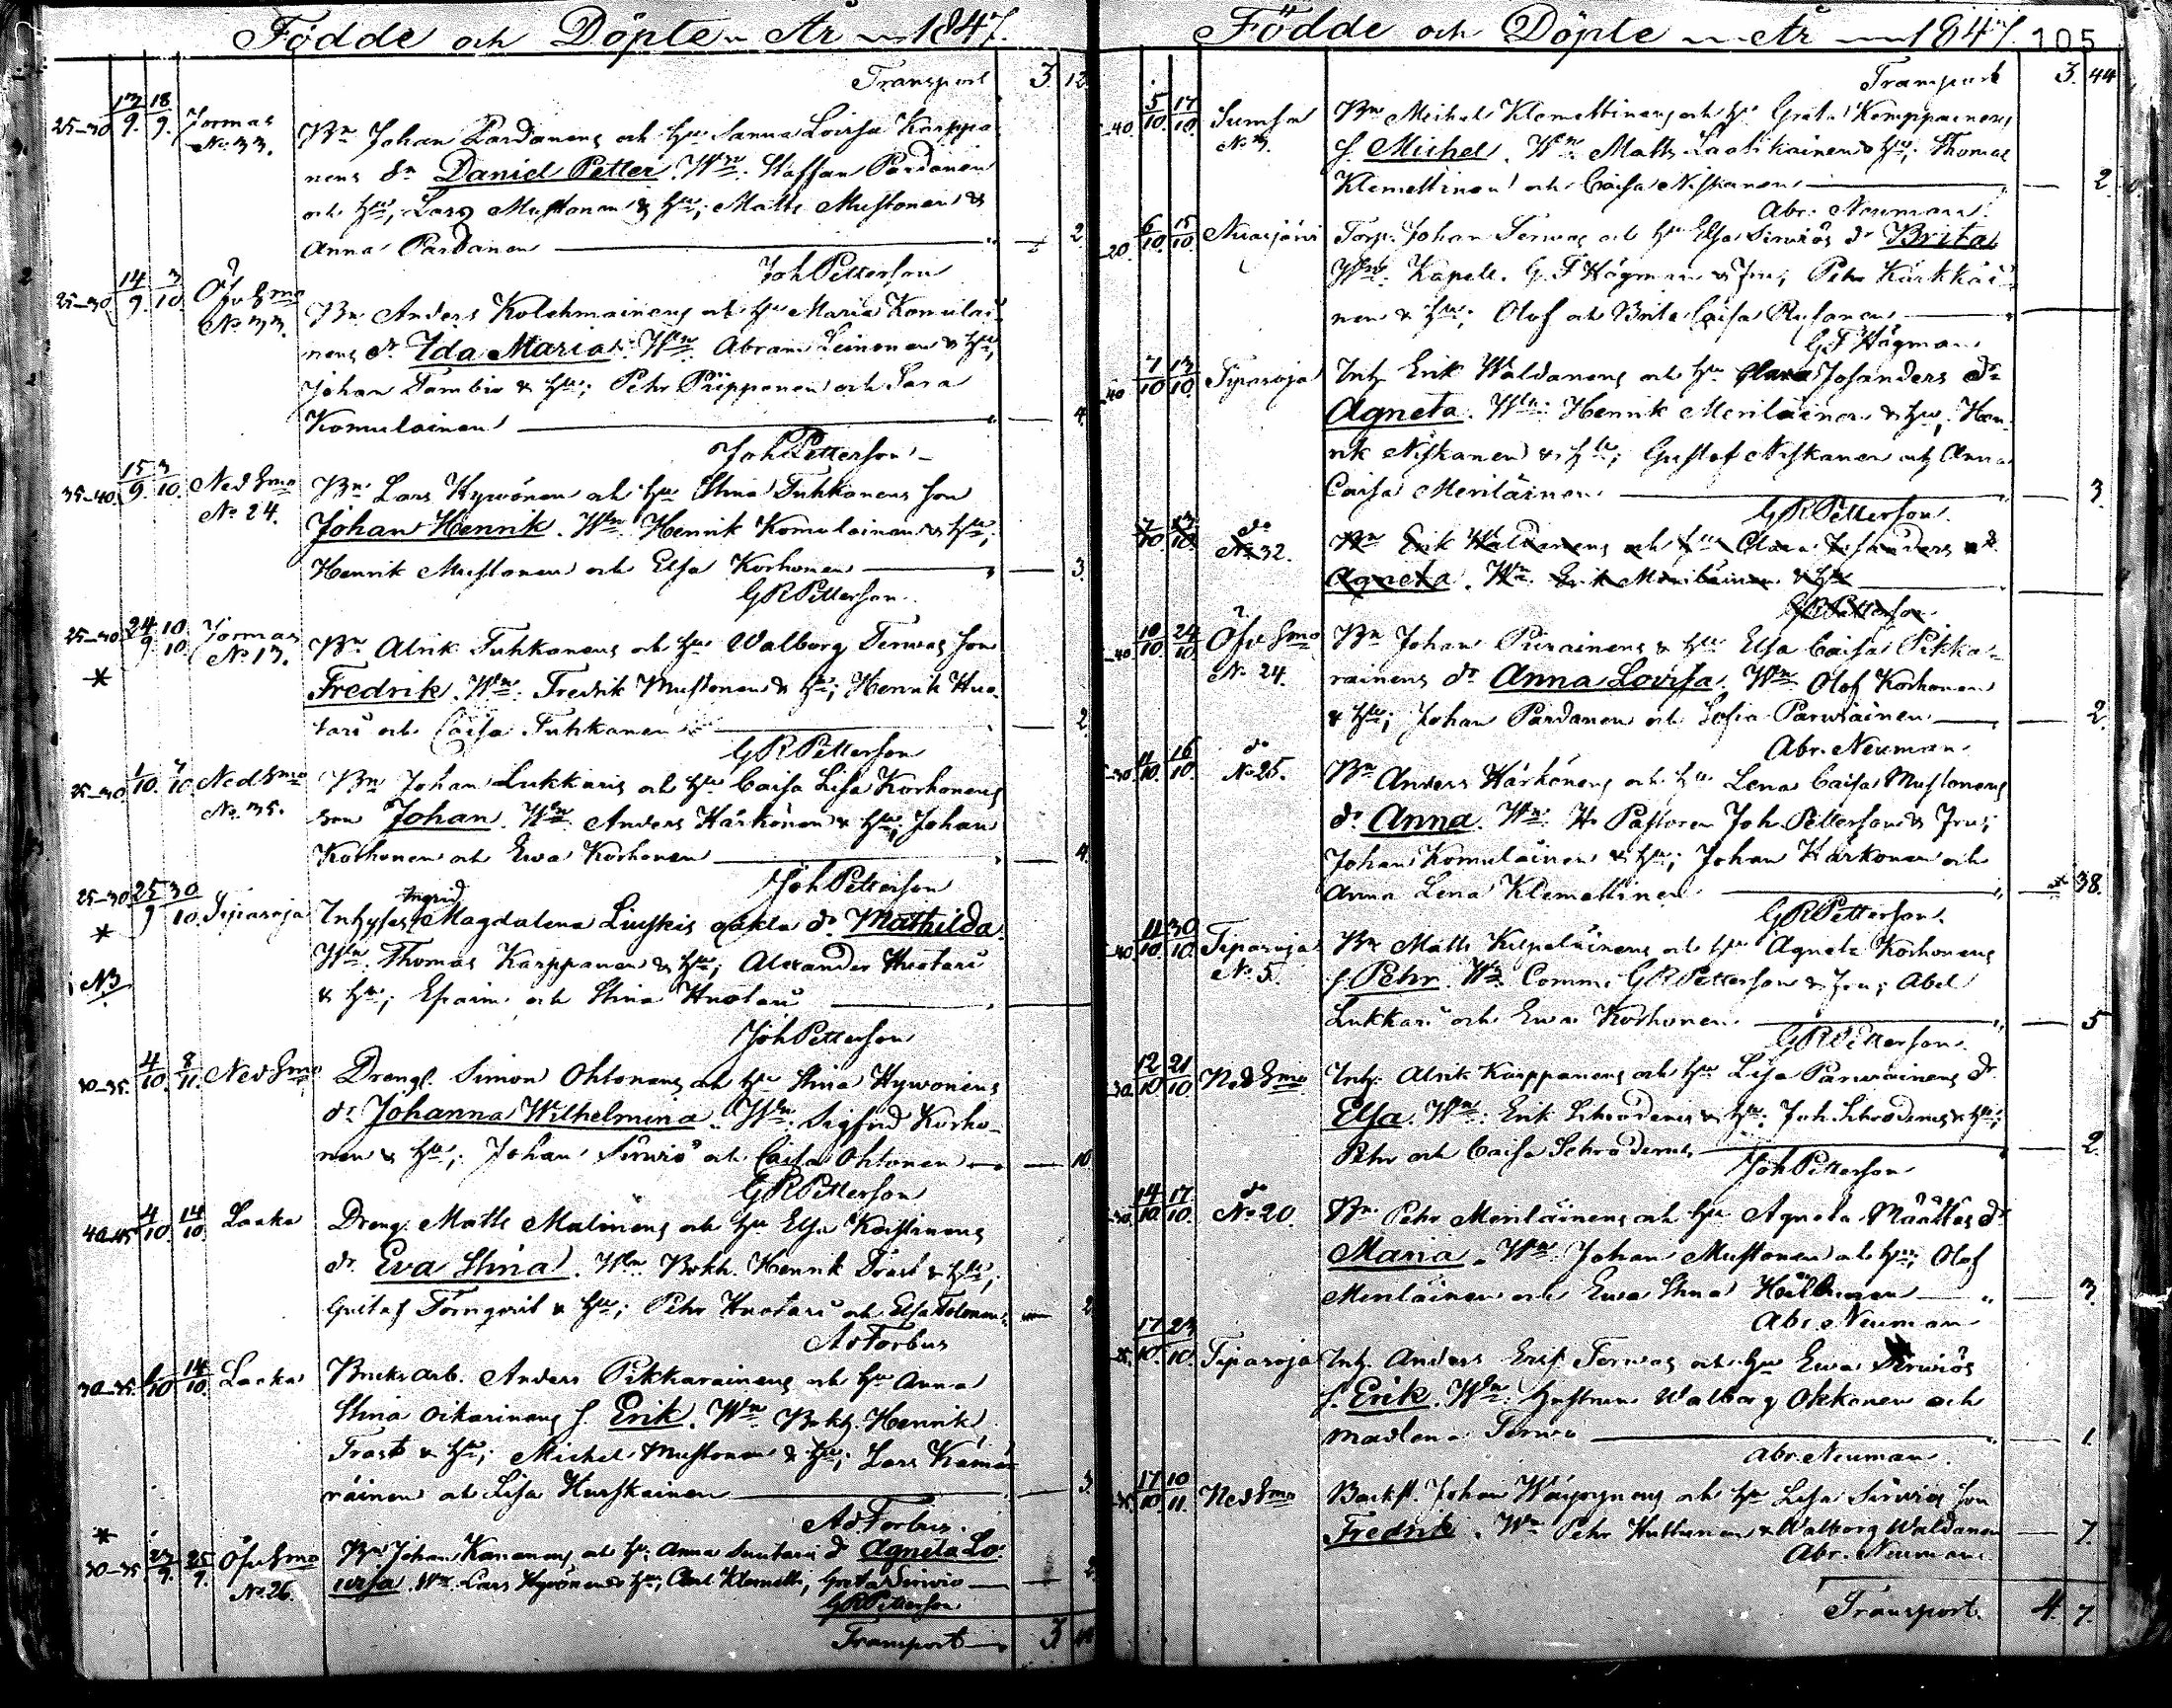 Födde och Döpte År 1847.
Transport 3. 12.
25-30 13/9. 18/9. Jormas Bn Johan Pardanens och Hu Sanna Lovisa Karppa-
No 33. nens dr Daniel Petter. Wn. Staffan Pardanen
och Hu; Lars Mustonen & Hu; Matts Mustonen &
Anna Pardanen 2.
Joh Petterson
25-30 14/9. 3/10. Öfv Smo Bn Anders Kolehmainens och Hu Maria Komulai-
No 33. nens dr Ida Maria. Wn. Abram Leinonen & Hu;
Johan Tambio & Hu; Pehr Piipponen och Sara
Komulainen 4.
Joh Petterson
35-40. 15/9. 3/10. Ned Smo Bn Lars Hyvönen och Hu Stina Tuhkanens son
No 24. Johan Henrik. Wn Henrik Komulainen & Hu;
Henrik Mustonen och Elsa Korhonen 3.
G R Petterson.
25-30 24/9 10/10. Jormas Bn Alrik Tuhkanens och Hu Walborg Terwas son
* No 13. Fredrik. Wn. Fredrik Mustonen & Hu; Henrik Huo-
tari och Caisa Tuhkanen 2.
G R Petterson
25-30 1/10. 7/10 Ned Smo Bn Johan Lukkaris och Hu Caisa Lisa Korhonens
No 35. son Johan. Wn Anders Härkönen & Hu; Johan
Korhonen och Ewa Korhonen 4.
Joh Petterson
Ingrid
25-30 25/9 30/10. Tiparoja Inhyses Magdalena Liuskis oäkta dr Mathilda.
* Wn. Thomas Karppanen & Hu; Alexander Huotari
NB. & Hu; Efraim och Stina Huotari
Joh Petterson
30-35. 4/10. 8/11. Ned Smo Drengf. Simon Ohtonens och Hu Stina Hywönens
dr Johanna Wilhelmina. Wn. Sigfrid Korho-
nen & Hu; Johan Sirwiö och Caisa Ohtonen 10.
G R Petterson
40-45 4/10. 14/10. Laaka Dreng. Matts Malinens och Hu Elsa Kostinens
dr Eva Stina. Wn Bokh. Henrik Trast & Hu;
Gustaf Törnqvist & Hu; Pehr Huotari och Elsa Tolonen 2.
Ad Forbus
30-35. 6/10 14/10. Laaka Bruks arb. Anders Pikkarainens och Hu Anna
Stina Oikarinens s. Erik. Wn Bokh. Henrik
Trast & Hu; Michel Mustonen & Hu; Lars Kämä-
räinen och Lisa Hurskainen 3.
Ad Forbus.
* Bn Johan Kananens och Hu Anna Suutari dr Agneta Lo-
30-35. 23/9. 25/9. Öfv Smo wisa. Wn. Lars Hyvönen & Hu; Carl Klemetti, Greta Sirwiö 2.
No 26. G R Petterson
Transport 3
Födde och Döpte År 1847. 105
Transport 3. 44
-40. 5/10. 17/10. Sumsa Bn Michel Klemettinens och Hu Greta Kemppainens
No 3. s. Michel. Wn. Matts Laatikainen & Hu; Thomas
Klemettinen och Caisa Niskanen 2.
Abr. Neuman.
-20 6/10. 15/10. Nuasjärvi Torp. Johan Terwas och Hu Elsa Sirwiös dr Brita
Wn. Kapell. G. F Högman & Fru; Pehr Kärkkäi-
nen & Hu; Olof och Brita Caisa
G F Högman
-40 7/10 13/10. Tiparoja Inh. Erik Waldanens och Hu Clara Josanders dr
Agneta. Wn. Henrik Meriläinen & Hu; Hen-
rik Niskanen & Hu; Gustaf Niskanen och Anna
Caisa Meriläinen 3.
G R Petterson.
7/10 13/10. do Bn Erik Waldanens och Hu Clara Josanders dr
No 32. Agneta. Wn. Erik Meriläinen & Hu
G R Petterson
-40 10/10 24/10. Öfv Smo Bn Johan Piirainens & Hu Elsa Caisa Pikka-
No 24. rainens dr Anna Lovisa. Wn Olof Korhonen
& Hu; Johan Pardanen och Sofia Parwiainen 2.
Abr. Neuman
-30 11/10. 16/10. do Bn Anders Härkönens och Hu Lena Caisa Mustonens
No 25. dr Anna. Wn. Hr Pastoren Joh. Petterson & Fru;
Johan Komulainen & Hu; Johan Härkonen och
Anna Lena Klemettinen 38.
G R Petterson.
-40 11/10 30/10. Tiparoja Bn Matts Kilpeläinens och Hu Agneta Korhonens
No 5. s. Pehr. Wn Comm. G R Petterson & Fru; Abel
Lukkari och Ewa Korhonen 5
G R Petterson.
-30 12/10 21/10 Ned Smo Inh. Alrik Karppanens och Hu Lisa Parwiainens dr
Elsa. Wn. Erik Schroderus & Hu; Joh. Schroderus & Hu;
Pehr och Caisa Schroderus 2.
Joh Petterson
-30 14/10 17/10. do Bn Pehr Meriläinens och Hu Agneta Määttäs dr
No 20. Maria. Wn. Johan Mustonen och Hu; Olof
Meriläinen och Ewa Stina 3.
Abr. Neuman
17/10. 23/10. Tiparoja Inh. Anders Erik Terwas och Hu Ewa Sirwiös
s. Erik. Wn. Hustrun Walborg Okkonen och
Madlena Terwo 1.
Abr. Neuman.
17/10. 10/11. Ned Smo Backst. Johan Wäyrynens och Hu Lisa Sirwiös son
Fredrik. Wn Pehr Huttunen & Walborg Waldanen 7.
Abr. Neuman.
Transport. 4. 7.